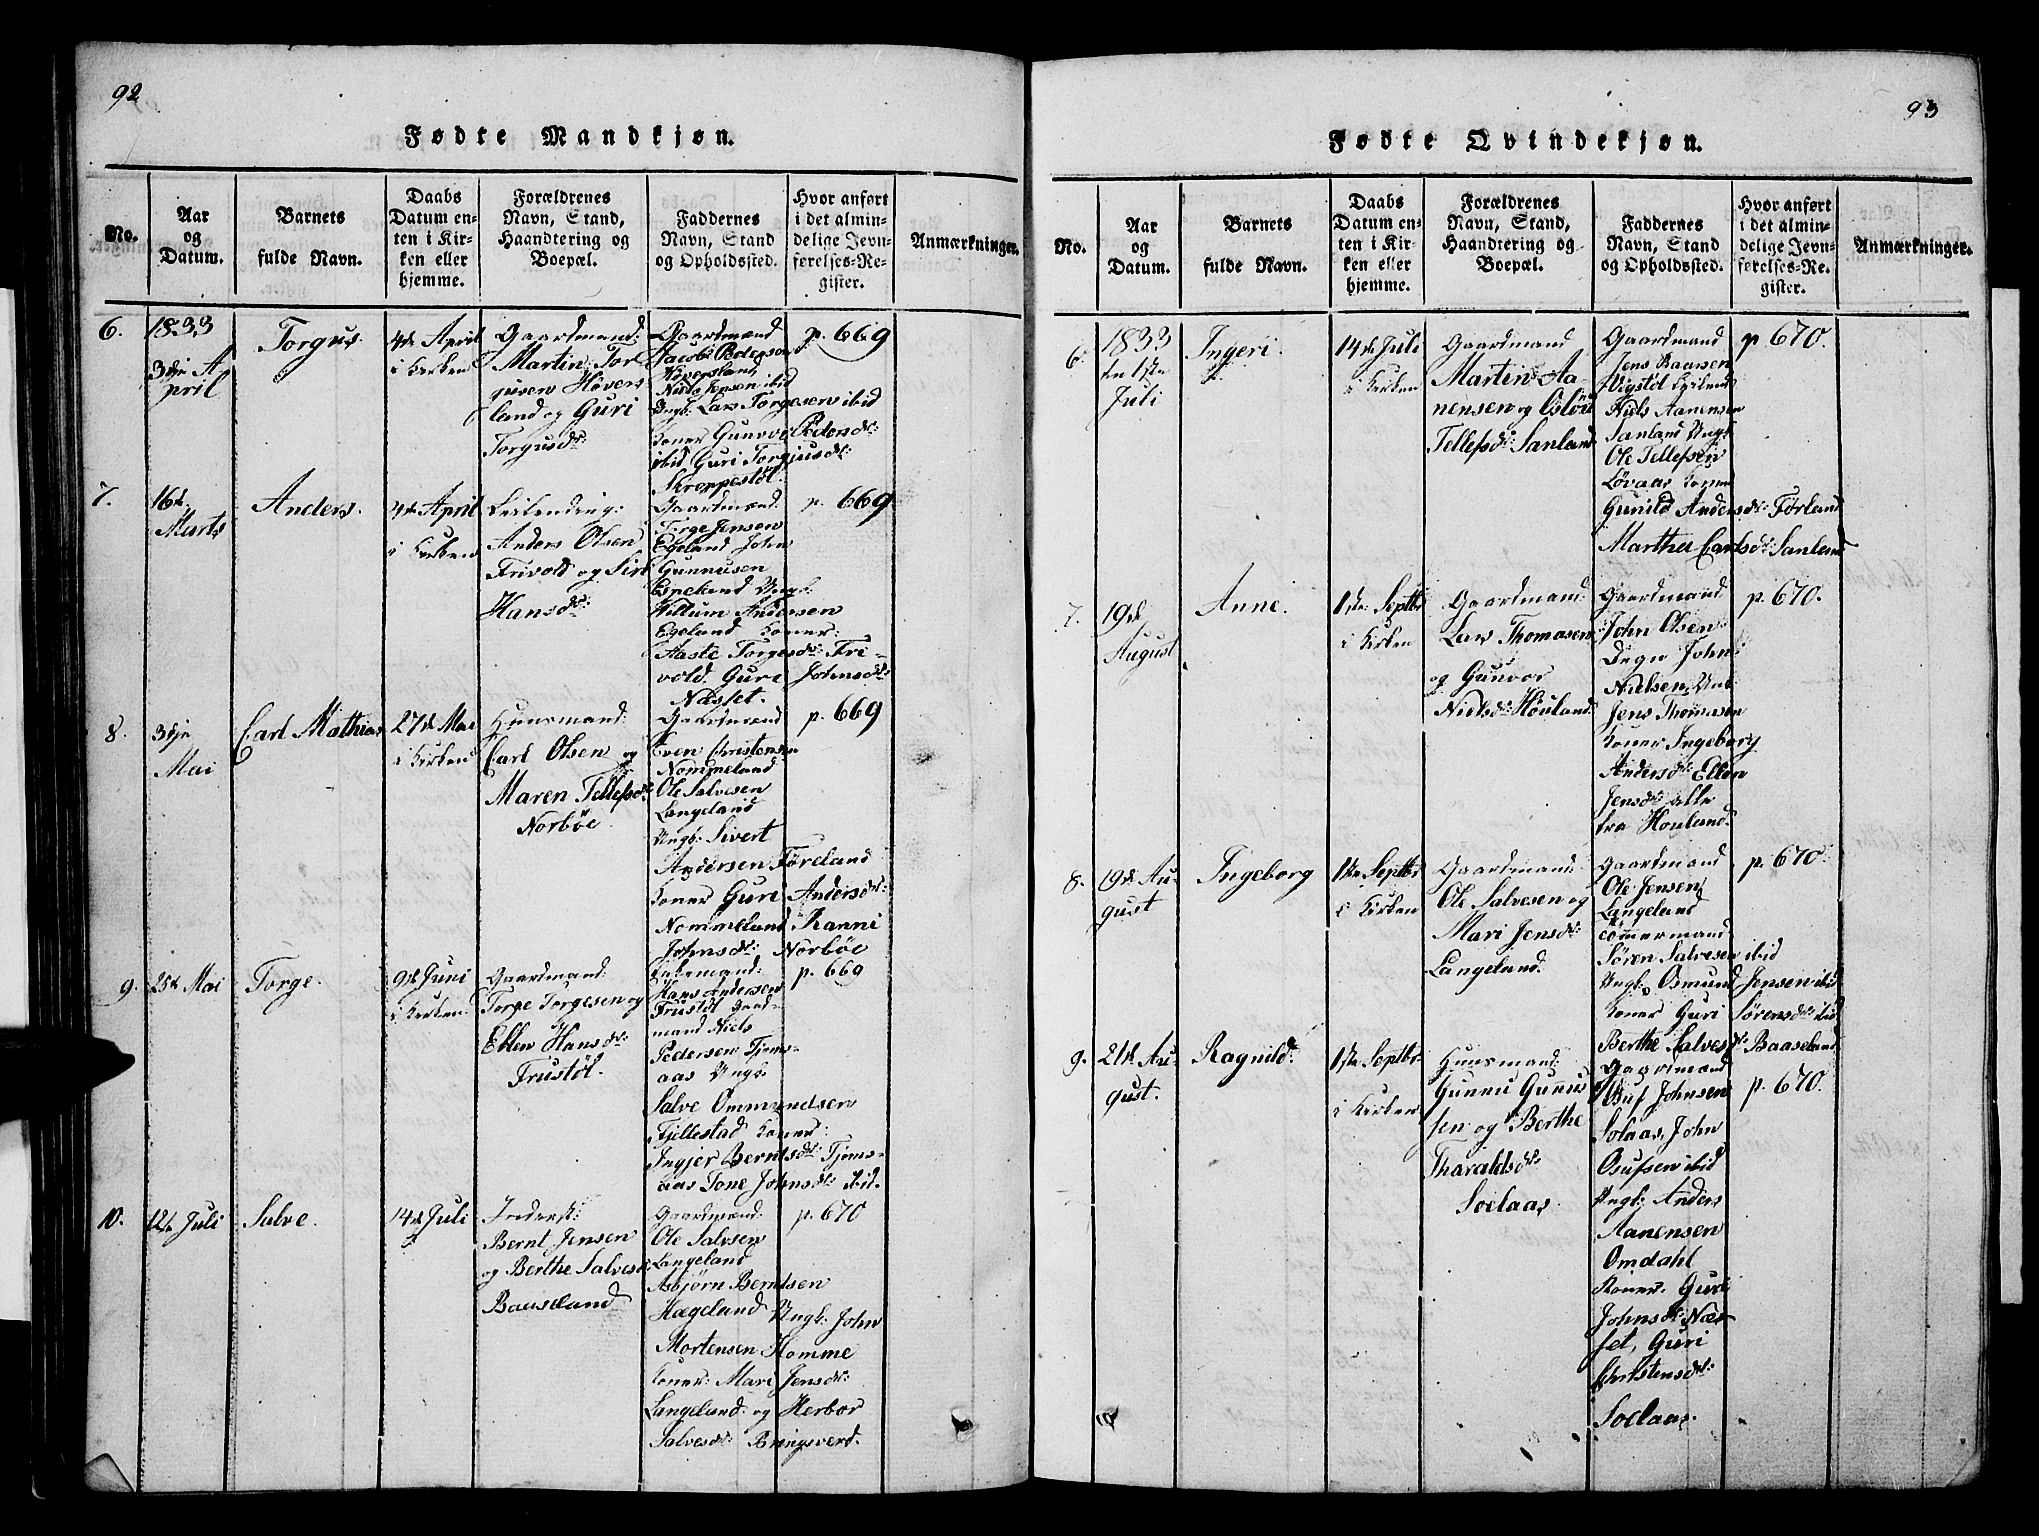 92
Fødte Mandkjøn.
No.
Aar
og
Datum.
Barnets
fulde Navn.
Daabs
Datum en-
ten i Kir-
ken eller
hjemme.
Forældrenes
Navn, Stand,
Haandtering og
Boepæl.
Faddernes
Navn, Stand
og Opholdssted.
Hvor anført
i det almin-
delige Jevn-
førelses-Re-
gister.
Anmærkninger.
6.
1833
3die A
pril
Torgus.
4de April
i Kirken
Gaardmand:
Martin Tor
gusen Høvers
land og Guri
Torgusdr:
Gaardmænd
Jacob Pedersen
Høversland
Niels Jensen ibid
Ungk: Lars Torgesen ibid
Koner Gunvor Pedersdr:
ibid Guri Torgusdr:
Skroppestøl.
p. 669
7.
16de
Marts
Anders.
4de April
i Kirken
Leilending:
Anders Olsen
Frivold og Siri
Hansdr:
Gaardmænd:
Torge Jensen
Egeland John
Gunnusen
Ungk:
Willum Andersen
Egeland Koner:
Aaste Torgesdr: Fri-
vold. Guri Johnsdr:
Næsset.
p. 669
8.
3die
Mai
Carl Mathias
27de Mai
i Kirken
Huusmand:
Carl Olsen og
Maren Tellefsdr:
Norbøe.
Gaardmænd
Even Christensen
Nommeland
Ole Salvesen
Langeland
Ungk: Sivert
Andersen Føreland
Koner Guri Andersdr:
Nommeland Kanni
Johnsdr: Norbøe
p. 669
9.
25de Mai
Torge.
9de Juni
i Kirken
Gaardmand:
Torge Torgesen og
Ellen Hansdr:
Frustøl.
Hans Andersen
Frustøl Gaard
mand Niels
Pedersen Tjoms-
aas Ungk:
Salve Ommundsen
Fjellestad Koner:
Ingjer Berntsdr: Tjoms-
aas Tone Johnsdr: ibid.
p. 669
10.
12te Juli
Salve.
14de Juli
Inderst:
Bernt Jensen
og Berthe Salvesdr
Baaseland
Gaardmænd:
Ole Salvesen
Langeland
Asbjørn Berntsen
Hægeland Ungk: John
Mortensen Homme
Koner: Mari Jensdr:
Langeland og Herbor
Salvesdr: Bringsverd.
p. 670
93
Fødte Qvindekjøn.
No.
Aar
og
Datum.
Barnets
fulde Navn.
Daabs
Datum en-
ten i Kir-
ken eller
hjemme.
Forældrenes
Navn, Stand,
Haandtering og
Boepæl.
Faddernes
Navn, Stand
og Opholdssted.
Hvor anført
i det almin-
delige Jevn-
førelses-Re-
gister.
Anmærkninger.
6
1833
den 1ste
Juli
Ingeri.
14de Juli
i Kirken
Gaardmand
Martin Aa-
nensen og Oslöu
Tellefsdr: Sanland
Gaardmænd
Jens Baansen
Niels Aanensen
Sanland Ungk:
Ole Tellefsen
Løvaas Koner
Gunild Andersdr: Förland
Marthea Carlsdr: Sanland
p 670.
7.
19de
August
Anne.
1ste Septbr
i Kirken
Gaardmand:
Lars Thomasen
og Gunvor
Nielsdr: Hövland
Gaardmænd
John Olsen
John
Nielsen, Ungk:
Jens Thomasen
Koner Ingeborg
Andersdr: Ellen
Jensdr: alle
fra Houland.
p. 670.
8.
19de Au-
gust
Ingeborg
1ste Septbr
i Kirken
Gaardmand:
Ole Salvesen og
Mari Jensdr:
Langeland.
Gaardmænd
Ole Jensen
Langeland
Tömmermand
Sören Salvesen ibid
Ungk: Osmund Jensen ibid
Koner Guri Sörensdr: ibid
Berthe Salvesdr: Baaseland
p. 670.
9.
21de Au-
gust.
Ragnild
1ste Septbr
i Kirken
Huusmand:
Gunnu Gunnu
sen og Berthe
Tharaldsdr:
Soelaas.
Gaardmænd
Osuf Johnsen
Solaas, John
Osufsen ibid
Ungk: Anders
Aanensen
Omdahl
Koner. Guri
Johnsdr: Næs-
set, Guri
Christensdr:
Soelaas.
p. 670.
10